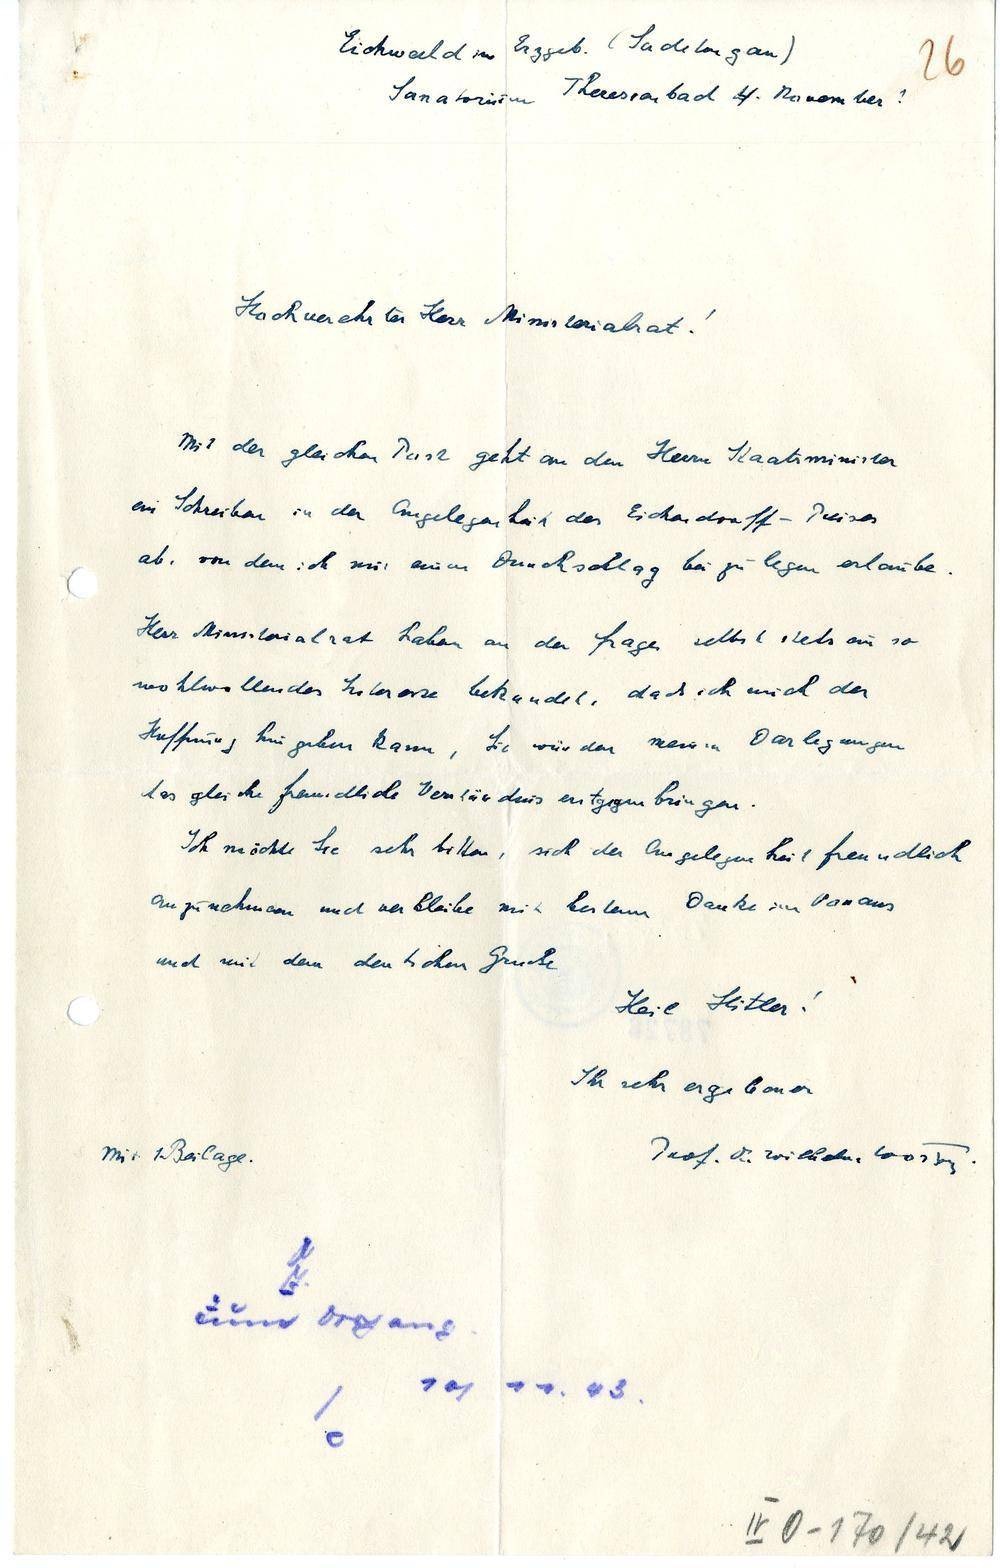 Eichwald im Erzgeb. (Sudetengau)
26
Sanatorium Theresienbad 4. November!
Hochverehrter Herr Ministerialrat!
Mit der gleichen Post geht an den Herrn Staatsminister
ein Schreiben in der Angelegenheit des Eichendorff-Preises
ab, von dem ich mir einen Durchschlag beizulegen erlaube.
Herr Ministerialrat haben an der Frage selbst stets ein so
wohlwollendes Interesse bekundet, dass ich mich der
Hoffnung hingeben kann, Sie würden meinen Darlegungen
das gleiche freundliche Verständnis entgegenbringen.
Ich möchte Sie sehr bitten, sich der Angelegenheit freundlich
anzunehmen und verbleibe mit bestem Danke im Voraus
und mit dem deutschen Gruße
Heil Hitler!
Ihr sehr ergebener
Mit 1 Beilage.
Prof. Dr. Wilhelm
zum Vorgang.
11. 43.
IV O-170/42